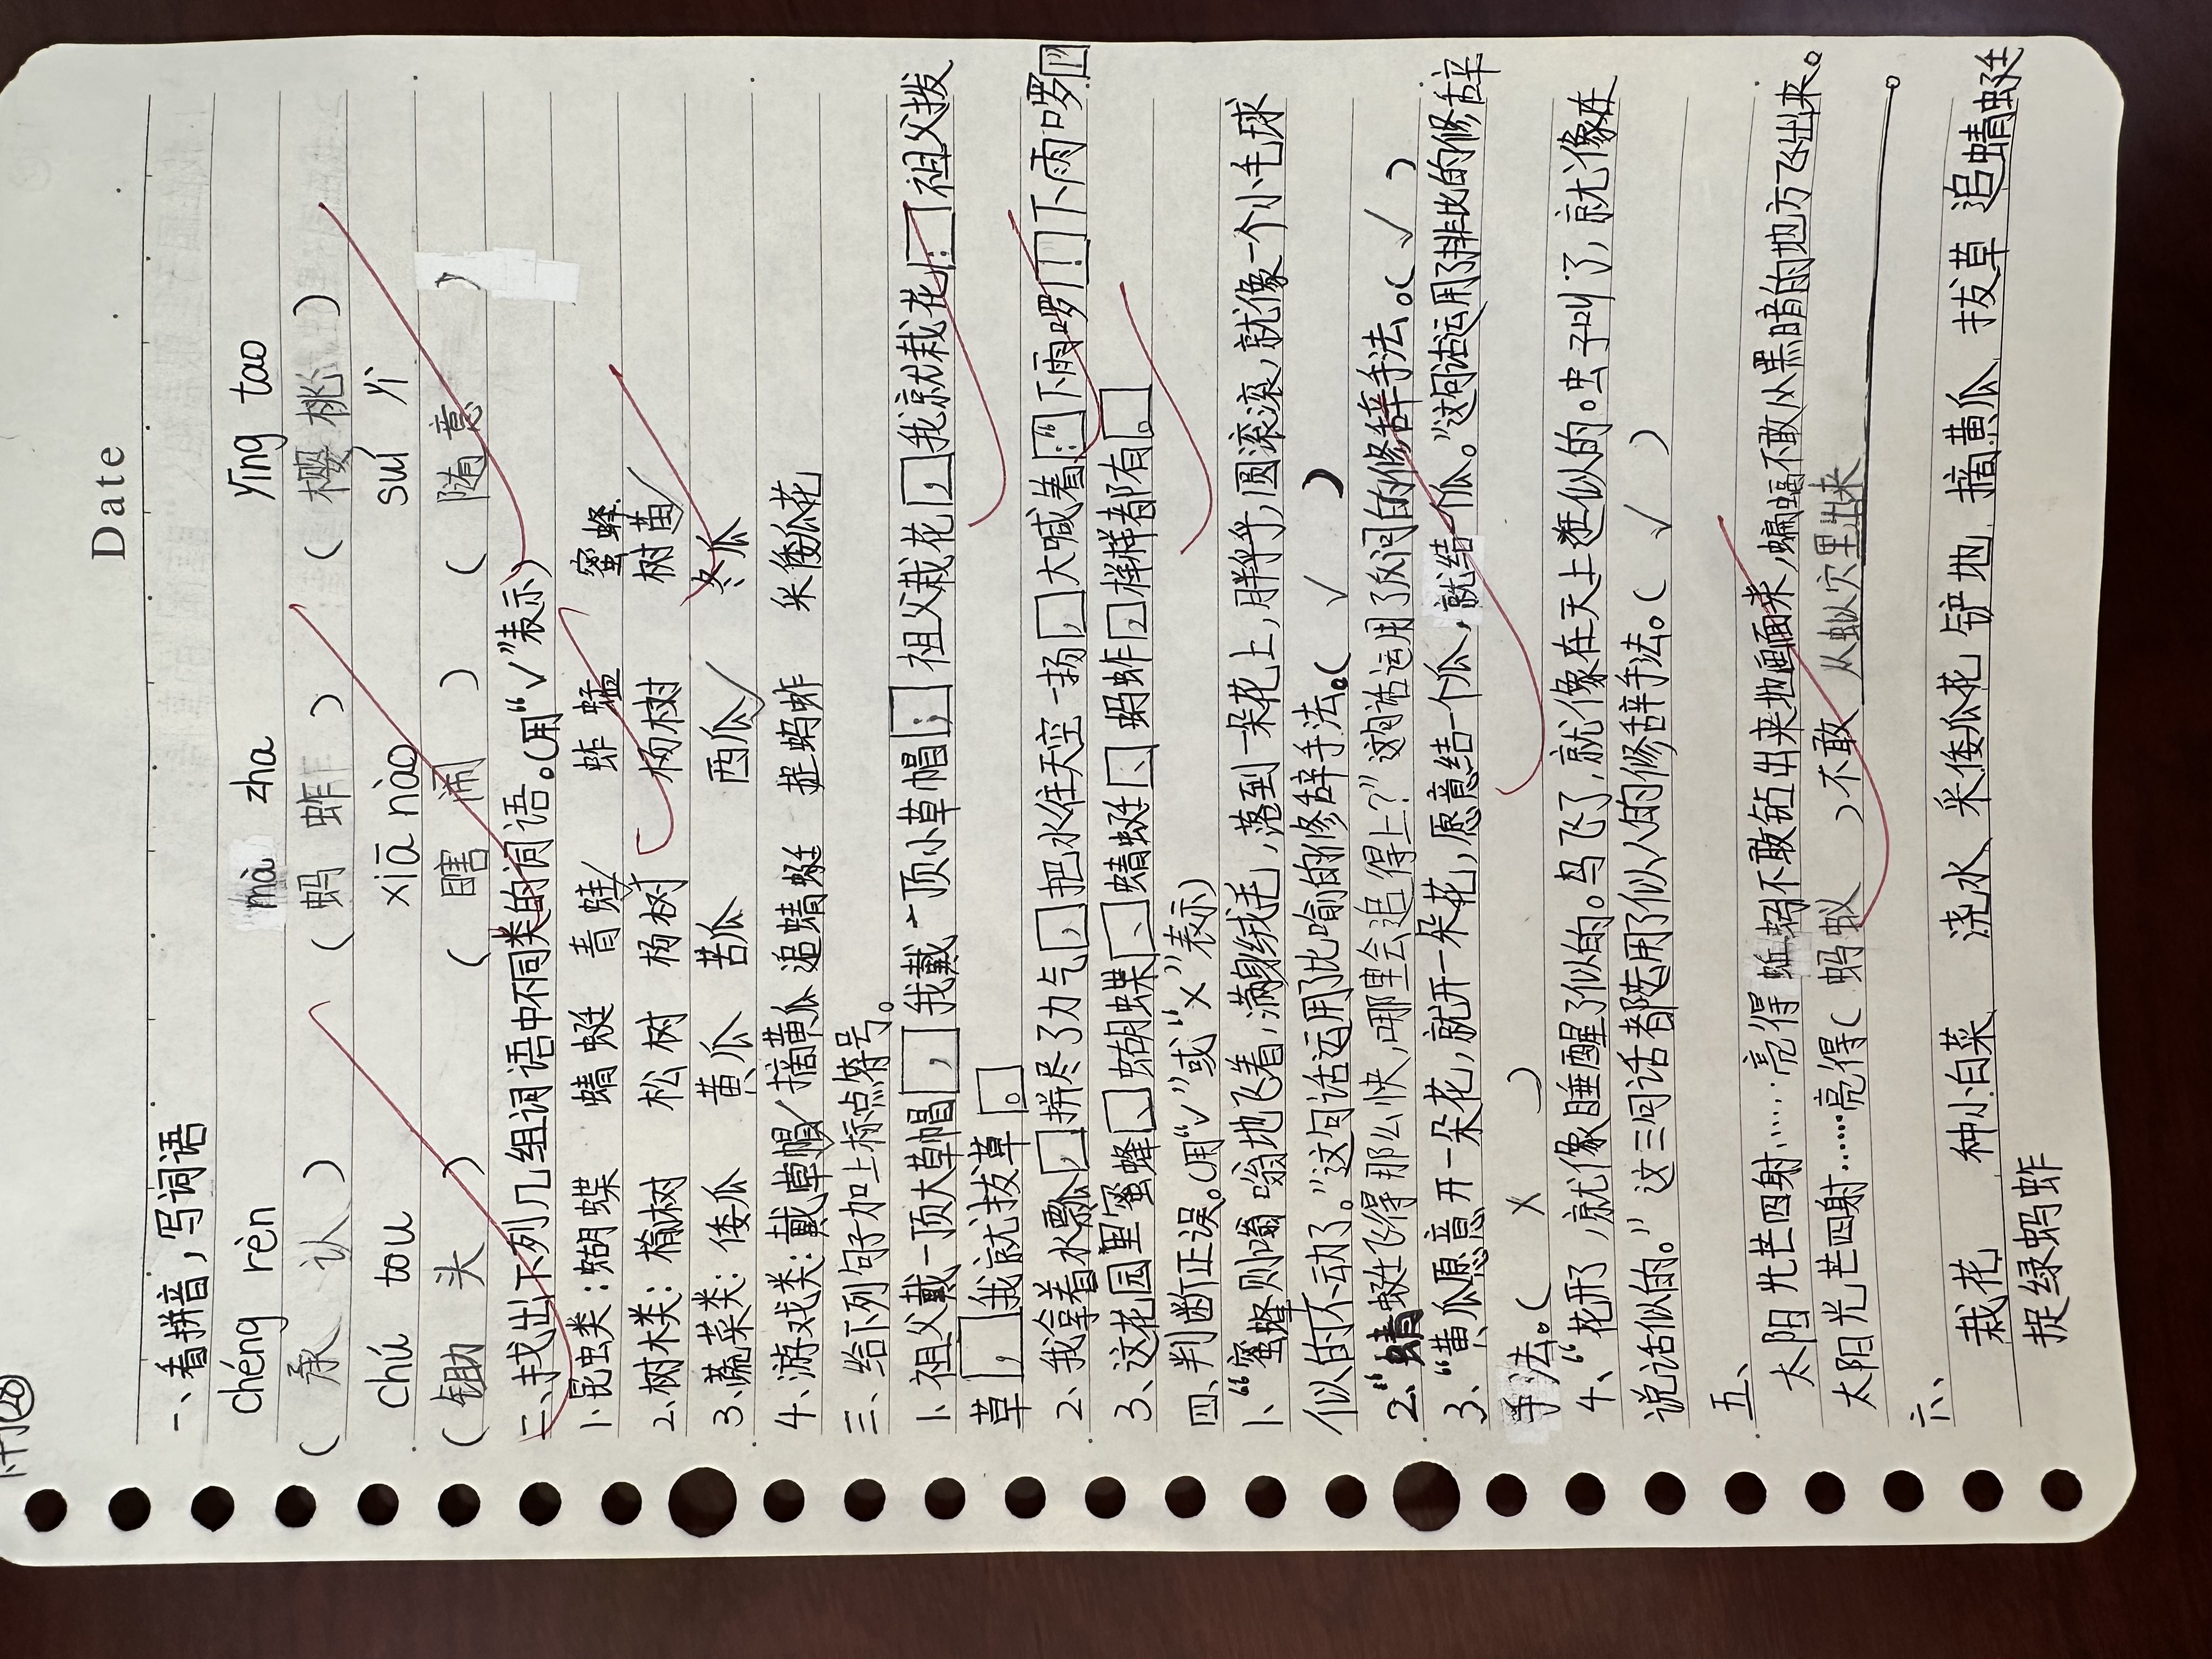 Date
一、看拼音,写词语
chéng rèn mà zha yīng tao
(承 认) (蚂 蚱) (樱 桃)
chú tou xiā nào suí yì
(锄 头) (瞎 闹) (随 意)
二、找出下列几组词语中不同类的词语。(用“√”表示)
1、昆虫类:蝴蝶 蜻蜓 青蛙√ 蚱蜢 蜜蜂
2、树木类:榆树 松树 杨树 杨树 树苗√
3、蔬菜类:倭瓜 黄瓜 苦瓜 西瓜√ 冬瓜
4、游戏类:戴草帽√ 摘黄瓜 追蜻蜓 捉蚂蚱 采倭瓜花
三、给下列句子加上标点符号。
1、祖父戴一顶大草帽,我戴一顶小草帽;祖父栽花,我就栽花;祖父拔
草,我就拔草。
2、我拿着水瓢,拼尽了力气,把水往天空一扬,大喊着:“下雨啰!下雨啰!”
3、这花园里蜜蜂、蝴蝶、蜻蜓、蚂蚱,样样都有。
四、判断正误。(用“√”或“×”表示)
1、“蜜蜂则嗡嗡地飞着,满身绒毛,落到一朵花上,胖乎,圆滚滚,就像一个小毛球
似的不动了。”这句话运用了比喻的修辞手法。( √ )
2、“蜻蜓飞得那么快,哪里会追得上?”这句话运用了反问的修辞手法。( √ )
3、“黄瓜愿意开一朵花,就开一朵花,愿意结一个瓜,就结一个瓜。”这句话运用了排比的修辞
手法。( × )
4、“花开了,就像睡醒了似的。鸟飞了,就像在天上逛似的。虫子叫了,就像在
说话似的。”这三句话都运用了似人的修辞手法。( √ )
五、
太阳光芒四射……亮得蚯蚓不敢钻出来地面来,蝙蝠不敢从黑暗的地方飞出来。
太阳光芒四射……亮得(蚂蚁)不敢从蚁穴里出来。
六、
栽花 种小白菜 浇水 采倭瓜花 铲地 摘黄瓜 拔草 追蜻蜓
捉绿蚂蚱